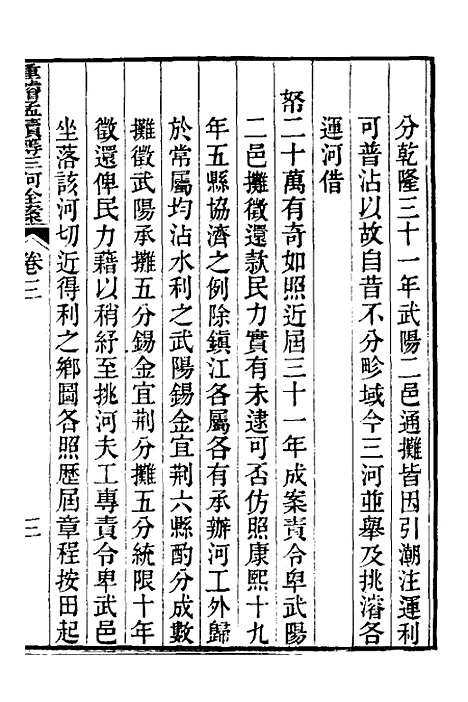 分乾隆三十一年武陽二邑通攤皆因引潮注運利
可普沾以故自昔不分畛域今三河並舉及挑濬各
運河借
帑二十萬有奇如照近屆三十一年成案責令卑武陽
二邑攤徵還款民力實有未逮可否仿照康熙十九
年五縣協濟之例除鎮江各屬各有承辦河工外歸
於常屬均沾水利之武陽錫金宜荆六縣酌分成數
攤徵武陽承攤五分錫金宜荆分攤五分統限十年
徵還俾民力藉以稍紓至挑河夫工專責令卑武邑
坐落該河切近得利之鄉圖各照歷屆章程按田起
重濬孟瀆等三河全案 卷三 三